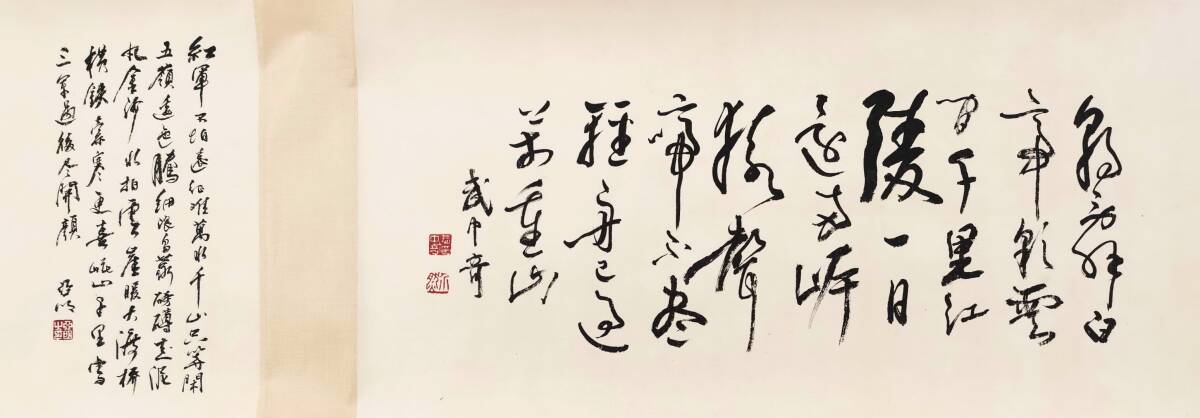 朝辞白
帝彩雲
間千里江
陵一日
還两岸
猿聲
啼不盡
輕舟已過
萬重山
武中奇
紅軍不怕遠征難萬水千山只等閑
五嶺逶迤騰細浪烏蒙磅礴走泥
丸金沙水拍雲崖暖大渡橋
橫鐵索寒更喜岷山千里雪
三軍過後尽開顏
亞明